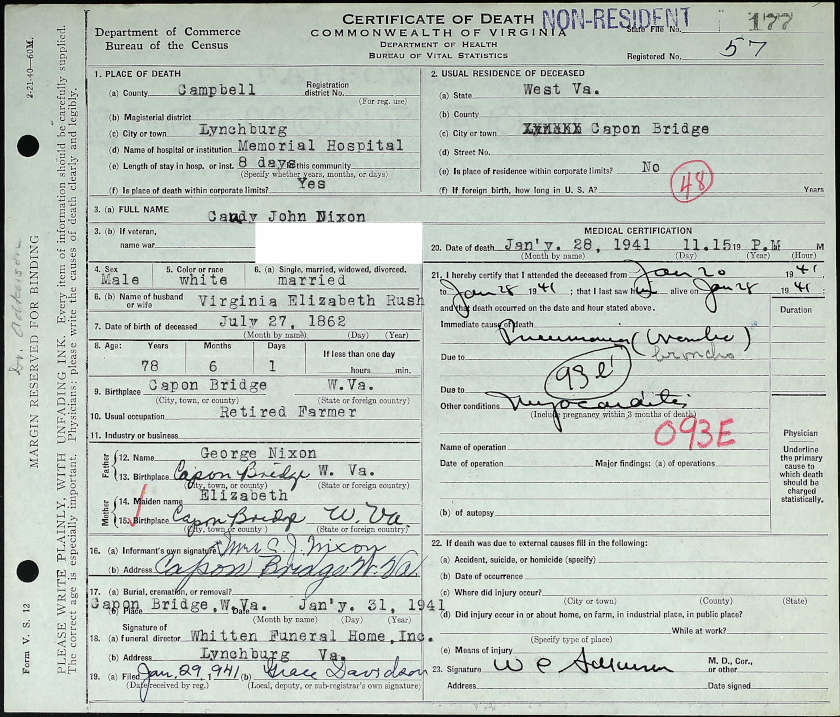 CERTIFICATE OF DEATH
NON-RESIDENT
Department of Commerce
Bureau of the Census
COMMONWEALTH OF VIRGINIA
DEPARTMENT OF HEALTH
BUREAU OF VITAL STATISTICS
State File No. 177
Registered No. 57
2-21-40—60M.
MARGIN RESERVED FOR BINDING
PLEASE WRITE PLAINLY, WITH UNFADING INK. Every item of information should be carefully supplied.
The correct age is especially important. Physicians: please write the causes of death clearly and legibly.
Form V. S. 12
1. PLACE OF DEATH
(a) County Campbell Registration district No.
(For reg. use)
(b) Magisterial district
(c) City or town Lynchburg
(d) Name of hospital or institution Memorial Hospital
(e) Length of stay in hosp. or inst. 8 days this community
(Specify whether years, months, or days)
(f) Is place of death within corporate limits? Yes
2. USUAL RESIDENCE OF DECEASED
(a) State West Va.
(b) County
(c) City or town Capon Bridge
(d) Street No.
(e) Is place of residence within corporate limits? No
48
(f) If foreign birth, how long in U. S. A? Years
3. (a) FULL NAME Caudy John Nixon
3. (b) If veteran,
name war
4. Sex Male
5. Color or race white
6. (a) Single, married, widowed, divorced. married
6. (b) Name of husband or wife Virginia Elizabeth Rush
7. Date of birth of deceased July 27, 1862
(Month by name) (Day) (Year)
8. Age: Years Months Days If less than one day
78 6 1 hours min.
9. Birthplace Capon Bridge W.Va.
(City, town, or county) (State or foreign country)
10. Usual occupation Retired Farmer
11. Industry or business
Father
12. Name George Nixon
13. Birthplace Capon Bridge W. Va.
(City, town, or county) (State or foreign country)
Mother
14. Maiden name Elizabeth
15. Birthplace Capon Bridge W. Va
(City, town, or county) (State or foreign country)
16. (a) Informant's own signature Mrs C. J. Nixon
(b) Address Capon Bridge W. Va.
17. (a) Burial, cremation, or removal?
(b) Place Capon Bridge, W.Va. Date Jan'y. 31, 1941
(Month by name) (Day) (Year)
18. Signature of
(a) funeral director Whitten Funeral Home, Inc.
(b) Address Lynchburg Va.
19. (a) Filed Jan. 29, 1941 (b) Grace Davidson
(Date received by reg.) (Local, deputy, or sub-registrar's own signature)
MEDICAL CERTIFICATION
20. Date of death Jan'y. 28, 1941 11.15 19 P.M M
(Month by name) (Day) (Year) (Hour)
21. I hereby certify that I attended the deceased from Jan 20 19 41
to Jan 28 19 41; that I last saw h alive on Jan 28 19 41;
and that death occurred on the date and hour stated above.
Duration
Immediate cause of death Pneumonia
broncho
Due to
93 e
Due to
Other conditions Myocarditis
(Include pregnancy within 3 months of death)
093E
Name of operation
Date of operation Major findings: (a) of operations
(b) of autopsy
Physician
Underline the primary cause to which death should be charged statistically.
22. If death was due to external causes fill in the following:
(a) Accident, suicide, or homicide (specify)
(b) Date of occurrence
(c) Where did injury occur?
(City or town) (County) (State)
(d) Did injury occur in or about home, on farm, in industrial place, in public place?
While at work?
(Specify type of place)
(e) Means of injury
23. Signature W C Adkerson M. D., Cor., or other
Address Date signed